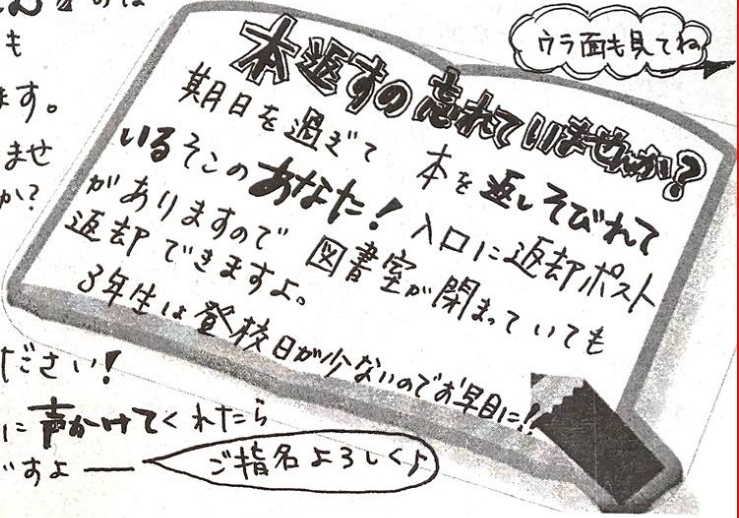 ウラ面も見てね
も
ます。
ませ
か?
本返すの忘れていませんか?
期日を過ぎて 本を返しそびれて
いるそこのあなた! 入口に返却ポスト
がありますので 図書室が閉まっていても
返却できますよ。
3年生は登校日が少ないのでお早目に!!
ださい!
に声かけてくれたら
すよ――
ご指名よろしく♪